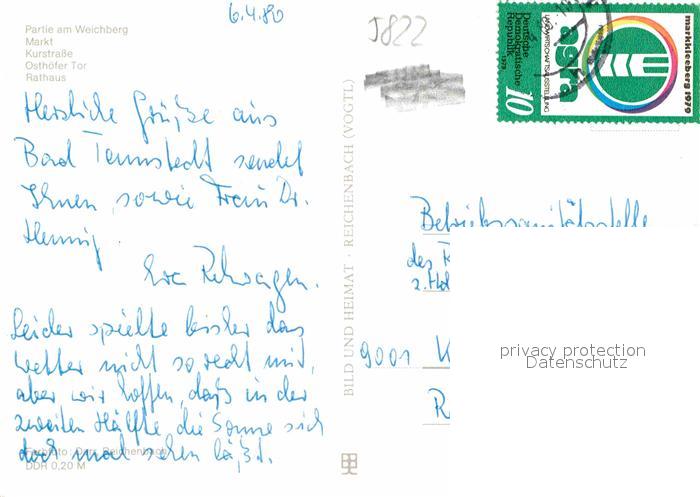 6.4.80
5822
Partie am Weichberg
Markt
Kurstraße
Osthöfer Tor
Rathaus
Herzliche Grüße aus
Bad Tennstedt sendet
Ihnen, sowie Frau Dr.
Hennig.
Eva Rehwagen.
Leider spielte bisher das
Wetter nicht so recht mit,
aber wir hoffen, daß in der
zweiten Hälfte die Sonne sich
doch mal sehen läßt.
Reichenbach
DDR 0,20 M
BILD UND HEIMAT · REICHENBACH (VOGTL)
markkleeberg 1979
agra
LANDWIRTSCHAFTSAUSSTELLUNG
Deutsche
Demokratische
Republik
1979
10
Betriebssanitätsstelle
des
2.
9001
privacy protection
Datenschutz